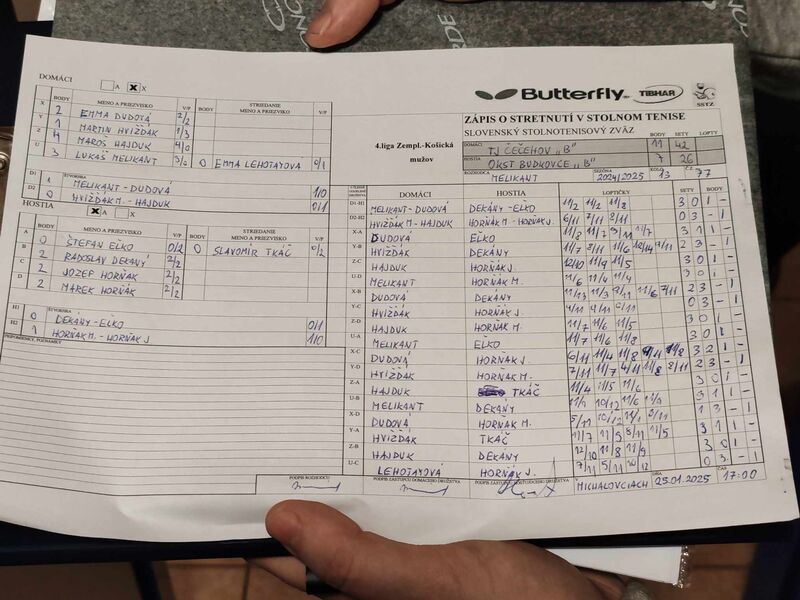 DOMÁCI
A X X
BODY MENO A PRIEZVISKO V/P BODY STRIEDANIE MENO A PRIEZVISKO V/P
X 2 EMMA DUDOVÁ 2/2
Y 1 MARTIN HVIŽDÁK 1/3
Z 4 MAROŠ HAJDUK 4/0
U 3 LUKÁŠ MELIKANT 3/0 0 EMMA LEHOTAYOVÁ 0/1
ŠTVORHRA
D1 1 MELIKANT-DUDOVÁ 1/0
D2 0 HVIŽDÁK M.-HAJDUK 0/1
HOSTIA
X A X
BODY MENO A PRIEZVISKO V/P BODY STRIEDANIE MENO A PRIEZVISKO V/P
A 0 ŠTEFAN EĽKO 0/2 0 SLAVOMÍR TKÁČ 0/2
B 2 RADOSLAV DEKÁNÝ 2/2
C 2 JOZEF HORŇÁK 2/2
D 2 MAREK HORŇÁK 2/2
ŠTVORHRA
H1 0 DEKÁNY-EĽKO 0/1
H2 1 HORŇÁK M.-HORŇÁK J. 1/0
PRIPOMIENKY, POZNÁMKY
Butterfly TIBHAR SSTZ
4.liga Zempl.-Košická
mužov
ZÁPIS O STRETNUTÍ V STOLNOM TENISE
SLOVENSKÝ STOLNOTENISOVÝ ZVÄZ BODY SETY LOPTY
DOMÁCI TJ ČEČEHOV „B" 11 42
HOSTIA OKST BUDKOVCE „B" 7 26
ROZHODCA MELIKANT SEZÓNA 2024/2025 13 77
DOMÁCI HOSTIA LOPTIČKY SETY BODY
D1-H1 MELIKANT-DUDOVÁ DEKÁNY-EĽKO 11/2 11/2 11/8 3 0 1 -
D2-H2 HVIŽDÁK M-HAJDUK HORŇÁK M-HORŇÁK J. 6/11 7/11 8/11 0 3 - 1
X-A DUDOVÁ EĽKO 3 1 1 -
Y-B HVIŽDÁK DEKÁNY 2 3 - 1
Z-C HAJDUK HORŇÁK J. 12/10 11/9 11/5 3 0 1 -
U-D MELIKANT HORŇÁK M. 11/6 11/4 11/4 3 0 1 -
X-B DUDOVÁ DEKÁNY 2 3 - 1
Y-C HVIŽDÁK HORŇÁK J. 0 3 - 1
Z-D HAJDUK HORŇÁK M. 11/7 11/6 11/5 3 0 1 -
U-A MELIKANT EĽKO 11/7 11/6 11/8 3 0 1 -
X-C DUDOVÁ HORŇÁK J. 6/11 11/4 11/8 9/11 11/8 3 2 1 -
Y-D HVIŽDÁK HORŇÁK M. 7/11 11/7 4/11 11/8 8/11 2 3 - 1
Z-A HAJDUK TKÁČ 11/4 11/5 11/6 3 0 1 -
U-B MELIKANT DEKÁNY
X-D DUDOVÁ HORŇÁK M. 1 3 - 1
Y-A HVIŽDÁK TKÁČ 11/7 11/9 8/11 11/5 3 1 1 -
Z-B HAJDUK DEKÁNY 12/10 11/8 11/9 3 0 1 -
U-C LEHOTAYOVÁ HORŇÁK J. 7/11 5/11 10/12 0 3 - 1
PODPIS ROZHODCU PODPIS ZÁSTUPCU DOMÁCEHO DRUŽSTVA PODPIS ZÁSTUPCU HOSŤUJÚCEHO DRUŽSTVA
MICHALOVCIACH 25.01.2025 17:00